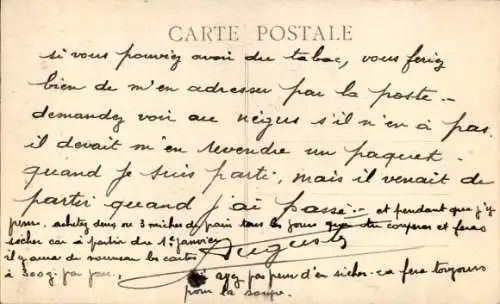 CARTE POSTALE
si vous pouviez avoir du tabac, vous feriez
bien de m'en adresser par la poste —
demandez voir au négus s'il n'en a pas
il devait m'en revendre un paquet
quand je suis parti, mais il venait de
partir quand j'ai passé — et pendant que j'y
pense, achetez deux ou 3 miches de pain tous les jours que tu couperas et feras
sécher car à partir du 1er janvier
il y aura de nouveau les cartes
à 300g. par jour,
Auguste
ayez pas peur d'en sécher. ça fera toujours
pour la soupe.